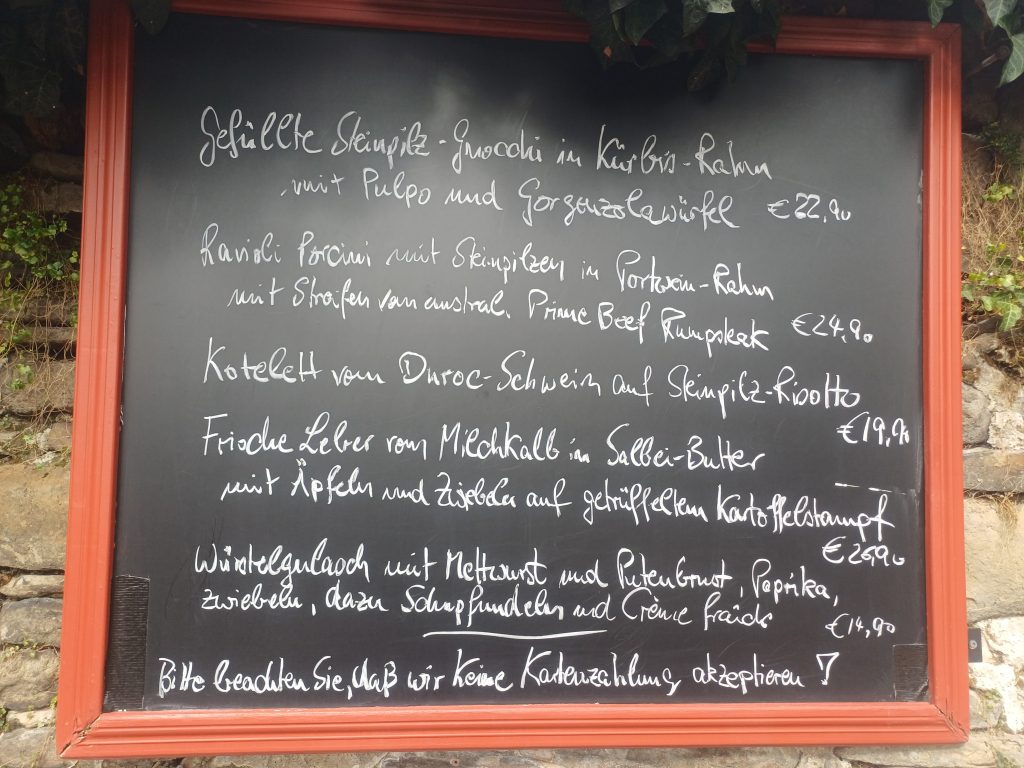 Gefüllte Steinpilz-Gnocchi in Kürbis-Rahm
mit Pulpo und Gorgonzolawürfel €22,90
Ravioli Porcini mit Steinpilzen in Portwein-Rahm
mit Streifen vom austral. Prime Beef Rumpsteak €24,90
Kotelett vom Duroc-Schwein auf Steinpilz-Risotto
€19,90
Frische Leber vom Milchkalb in Salbei-Butter
mit Äpfeln und Zwiebeln auf getrüffeltem Kartoffelstampf
Würstelgulasch mit Mettwurst und Putenbrust, Paprika,
Zwiebeln, dazu Schupfnudeln und Crème fraîche €14,90
Bitte beachten Sie, daß wir keine Kartenzahlung akzeptieren !